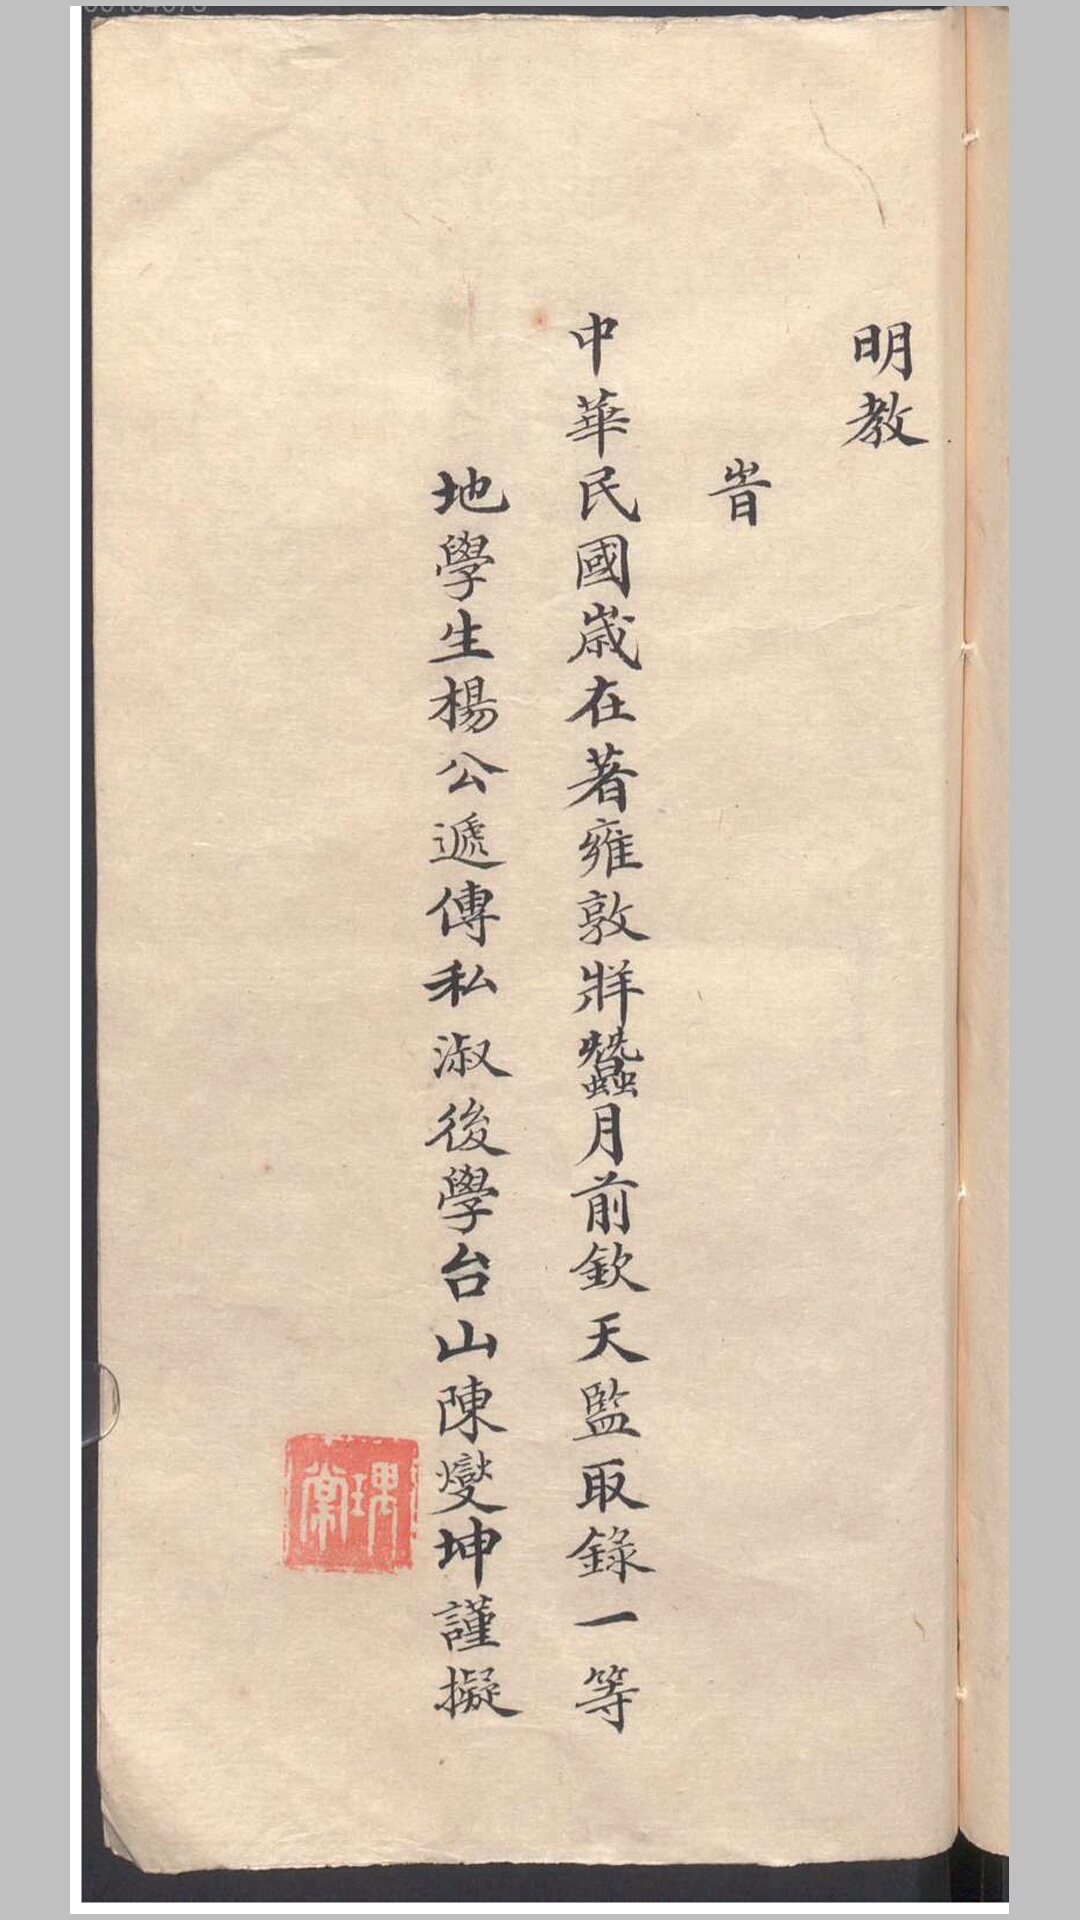 明教
旹
中華民國歲在著雍敦牂蠶月前欽天監取錄一等
地學生楊公遞傳私淑後學台山陳燮坤謹擬